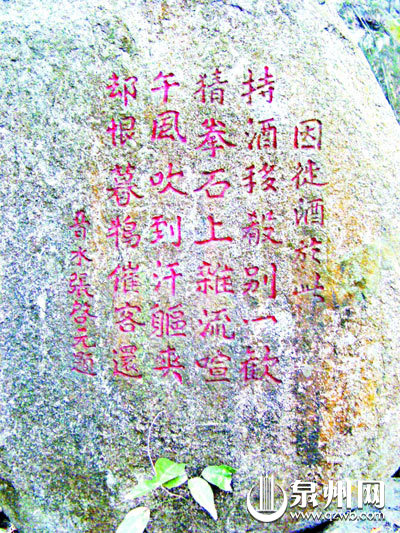 因徙酒於此
持酒移殽别一歡
猜拳石上雜流喧
午風吹到汗軀爽
却恨暮鴉催客還
晉水張啓元題
泉州网
www.qzwb.com